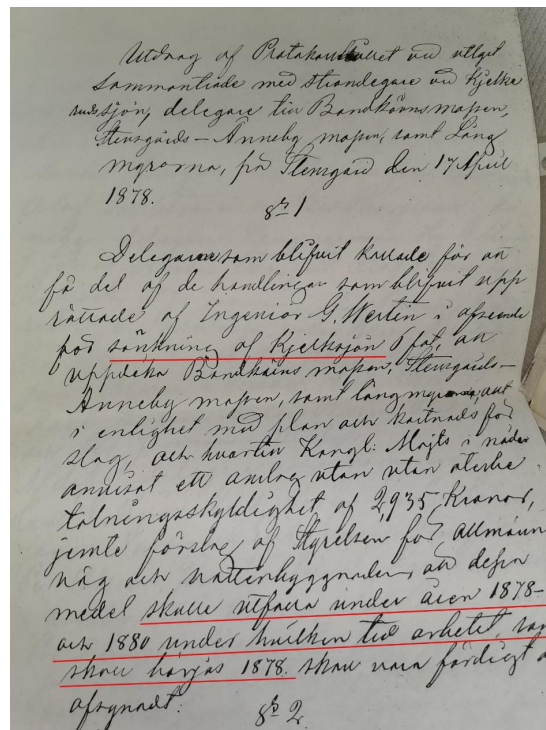 Utdrag af Protokollet vid utlyst
sammanträde med strandegare vid Kjelke
sjön, delegare till Bandkärnsmossen,
Stensgårds-Anneby mossen, samt Lång
myrorna, på Stensgård den 17 April
1878.
§ 1
Delegare som blifvit kallade för att
få del af de handlingar som blifvit upp
rättade af Ingeniör G. Wertin i afseende
på sänkning af Kjelksjön 6 fot, att
uppdika Bandkärns mossen, Stensgårds-
Anneby mossen, samt långmyrorna, allt
i enlighet med plan och kostnads för
slag, och hvartill Kongl: Majts i nåder
anvisat ett anslag utan åter be
talningsskyldighet af 2935 Kronor,
jemte förslag af Styrelsen för allmänna
väg och vattenbyggnader, att dessa
medel skulle utfalla under åren 1878-
och 1880 under hvilken tid arbetet, som
skall börjas 1878. skall vara färdigt
afsynadt.
§ 2